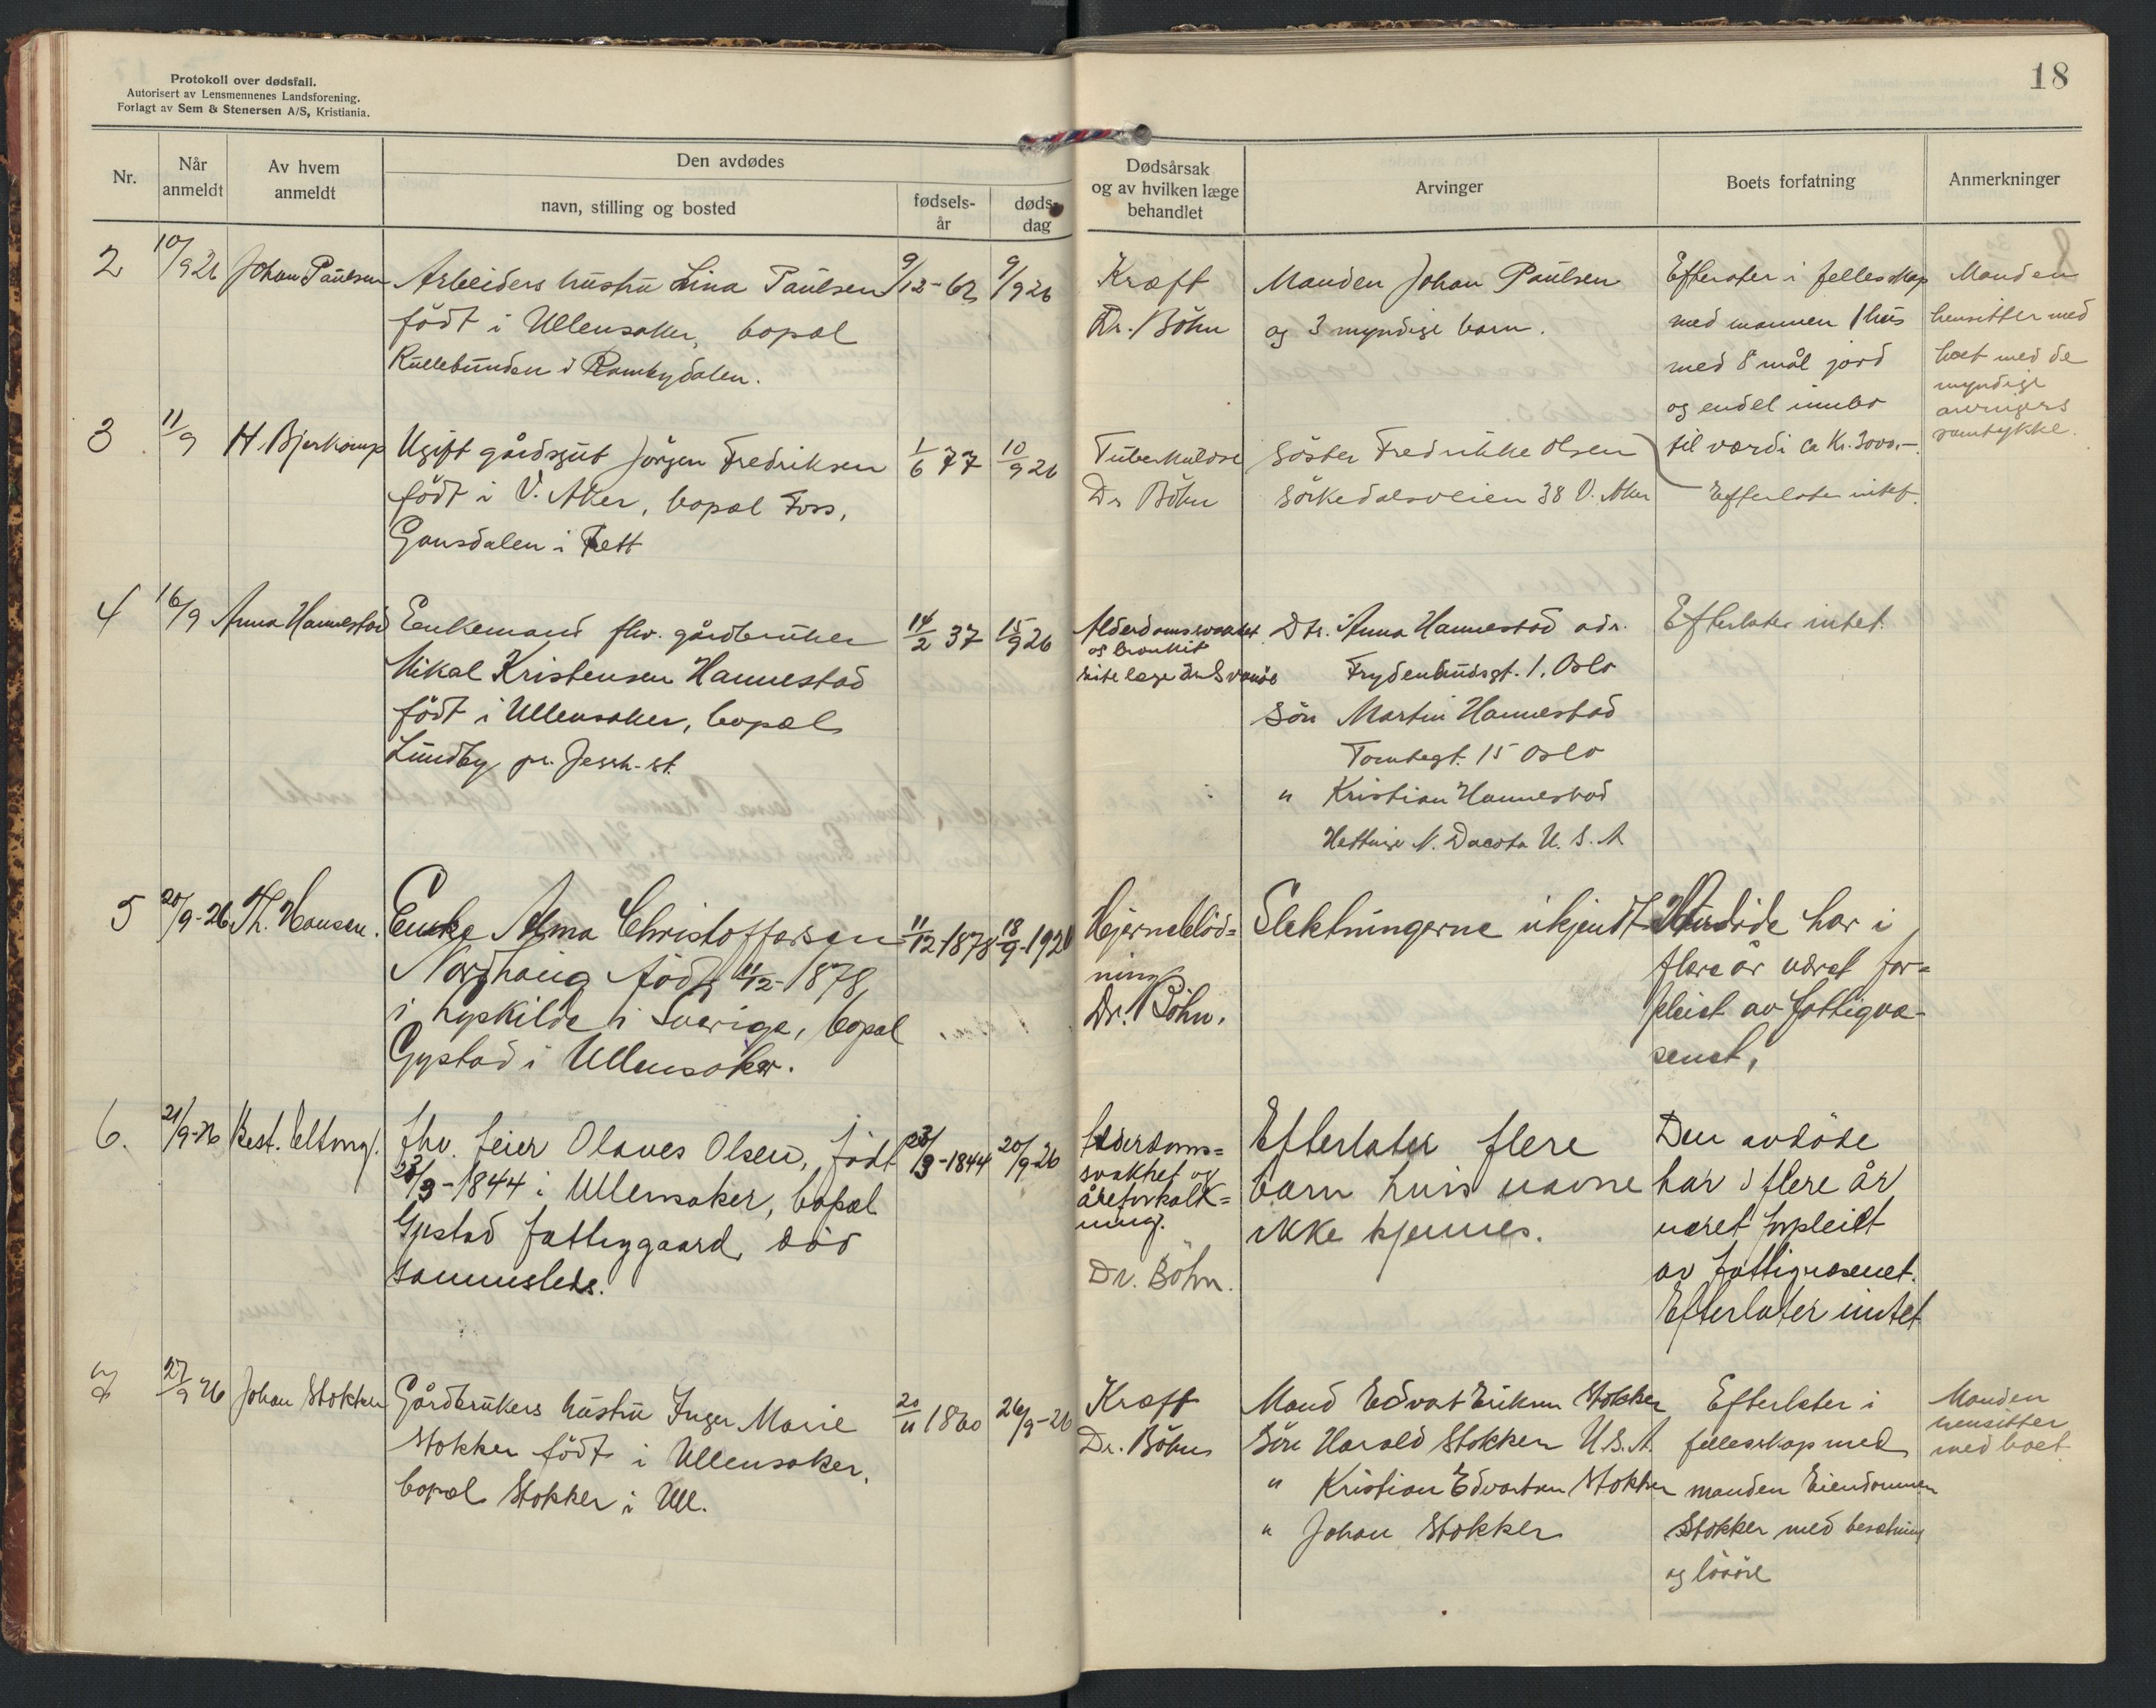 Protokoll over dødsfall.
Autorisert av Lensmennenes Landsforening.
Forlagt av Sem & Stenersen A/S, Kristiania.
18
Nr.
Når anmeldt
Av hvem anmeldt
Den avdødes
navn, stilling og bosted
fødsels-år
døds-dag
Dødsårsak og av hvilken læge behandlet
Arvinger
Boets forfatning
Anmerkninger
2
10/9 26
Johan Paulsen
Arbeiders hustru Lina Paulsen
født i Ullensaker, bopæl
i Rambydalen.
9/12-62
9/9 26
Kræft
Dr. Bøhn
Manden Johan Paulsen
og 3 myndige barn.
Efterlater i fellesskap
med mannen 1 hus
med 8 mål jord
og endel innbo
til værdi ca Kr. 3000.-
Manden
hensitter med
boet med de
myndige
arvingers
samtykke.
3
11/9
H. Bjerkamp
Ugift gårdsgut Jörgen Fredriksen
födt i V. Aker, bopæl Foss,
Gansdalen i Fett
1/6 77
10/9 26
Tuberkulose
Dr Böhn
Söster Fredrikke Olsen
Sörkedalsveien 38 V. Aker
Efterlater intet.
4
16/9
Anna Hannestad
Enkemand fhv. gårdbruker
Mikal Kristensen Hannestad
födt i Ullensaker, bopæl
Lundby pr. Jessh. st.
14/2 37
15/9 26
Alderdomssvakhet
og bronkit
Dtr. Anna Hannestad adr.
Frydenlundsgt. 1. Oslo
Sön Martin Hannestad
Tomtegt. 15 Oslo
" Kristian Hannestad
Hettinge N. Dacota U.S.A
Efterlater intet.
5
20/9-26
Th. Hansen.
Enke Alma Christoffersen
Nordhaug født 11/12-1878,
i Sverige, bopæl
Gystad i Ullensaker.
11/12-1878
18/9-1926
Hjerneblöd=
ning
Dr. Böhn.
Slektningerne ukjendt
har i
flere år været for=
pleiet av fattigvæ-
senet,
6.
21/9-26
Best. Eltong.
fhv. feier Olaves Olsen, födt
23/9-1844 i Ullensaker, bopæl
Gystad fattiggaard, död
sammesteds.
23/9-1844
20/9-26
Alderdoms=
svakhet og
åreforkalk=
ning.
Dr. Böhn.
Efterlater flere
barn hvis navne
ikke kjennes.
Den avdöde
har i flere år
været forpleiet
av fattigvæsenet.
Efterlater intet
7
27/9 26
Johan Stokker
Gårdbrukers hustru Inger Marie
Stokker födt i Ullensaker,
bopæl Stokker i Ull.
20/11 1860
26/9-26
Kræft
Dr. Böhn
Mand Edvart Eriksen Stokker
Sön Harald Stokker U.S.A.
" Kristian Edvartsen Stokker
" Johan Stokker
Efterlater i
fellesskap med
manden Eiendommen
Stokker med besætning
og lösöre
Manden
hensitter
med boet.